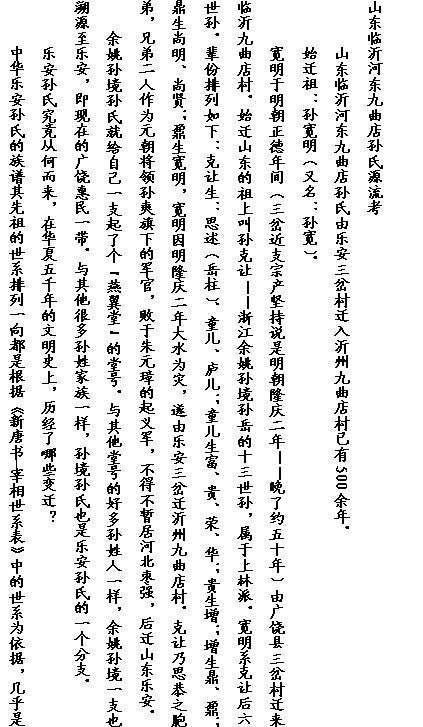 山东临沂河东九曲店孙氏源流考
山东临沂河东九曲店孙氏由乐安三岔村迁入沂州九曲店村已有500余年。
始迁祖：孙宽明（又名：孙宽）。
宽明于明朝正德年间（三岔近支宗产坚持说是明朝隆庆二年——晚了约五十年）由广饶县三岔村迁来
临沂九曲店村。始迁山东的祖上叫孙克让——浙江余姚孙境孙岳的十三世孙，属于上林派。宽明系克让后六
世孙。辈份排列如下：克让生：思述（岳柱）、童儿、庐儿；童儿生富、贵、荣、华；贵生增；增生鼎、鼐；
鼎生尚明、尚贤；鼐生宽明，宽明因明隆庆二年大水为灾，遂由乐安三岔迁沂州九曲店村。克让乃思恭之胞
弟，兄弟二人作为元朝将领孙爽旗下的军官，败于朱元璋的起义军，不得不暂居河北枣强，后迁山东乐安。
余姚孙境孙氏就给自己一支起了个“燕翼堂”的堂号。与其他堂号的好多孙姓人一样，余姚孙境一支也
溯源至乐安，即现在的广饶惠民一带。与其他很多孙姓家族一样，孙境孙氏也是乐安孙氏的一个分支。
乐安孙氏究竟从何而来，在华夏五千年的文明史上，历经了哪些变迁？
中华乐安孙氏的族谱其先祖的世系排列一向都是根据《新唐书—宰相世系表》中的世系为依据，几乎是